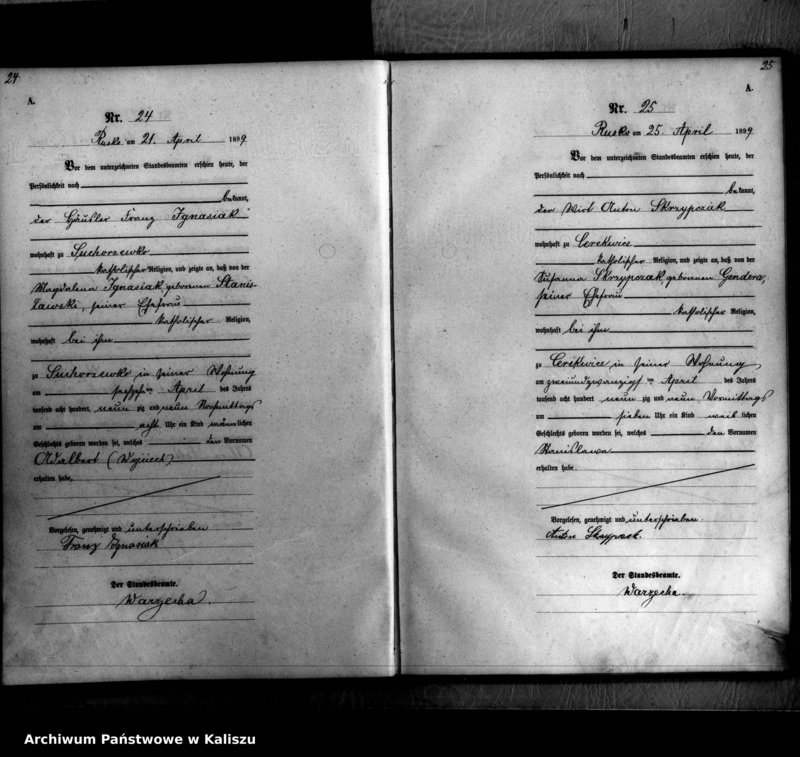 24
A.
Nr. 24
Rusko am 21. April 1899
Vor dem unterzeichneten Standesbeamten erschien heute, der
Persönlichkeit nach
bekannt,
der Häusler Franz Ignasiak
wohnhaft zu Suchorzewko
katholischer Religion, und zeigte an, daß von der
Magdalena Ignasiak, geborenen Stanis-
lawski, seiner Ehefrau
katholischer Religion,
wohnhaft bei ihm
zu Suchorzewko in seiner Wohnung
am April des Jahres
tausend acht hundert neun zig und neun Nachmittags
um acht Uhr ein Kind männlichen
Geschlechts geboren worden sei, welches den Vornamen
Adalbert (Wojciech)
erhalten habe,
Vorgelesen, genehmigt und unterschrieben
Franz Ignasiak
Der Standesbeamte.
Warzecha.
25
A.
Nr. 25
Rusko am 25. April 1899
Vor dem unterzeichneten Standesbeamten erschien heute, der
Persönlichkeit nach
bekannt,
der Wirt Anton Skrzypczak
wohnhaft zu Cerekwice
katholischer Religion, und zeigte an, daß von der
Susanna Skrzypczak, geborenen Gendera,
seiner Ehefrau
katholischer Religion,
wohnhaft bei ihm
zu Cerekwice in seiner Wohnung
am zweiundzwanzigst en April des Jahres
tausend acht hundert neun zig und neun Vormittags
um sieben Uhr ein Kind weib lichen
Geschlechts geboren worden sei, welches den Vornamen
Stanislawa
erhalten habe.
Vorgelesen, genehmigt und unterschrieben.
Anton
Der Standesbeamte.
Warzecha.
Archiwum Państwowe w Kaliszu